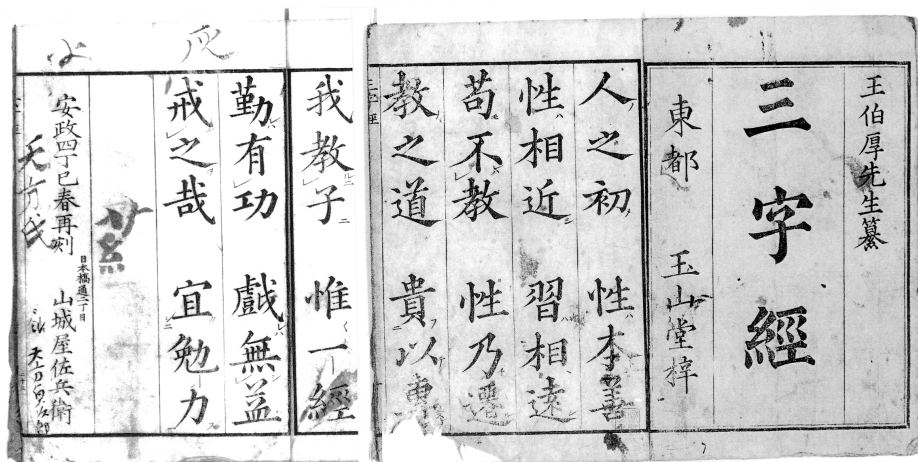 王伯厚先生纂
三字經
東都 玉山堂梓
人之初 性本善
性相近 習相遠
苟不教 性乃遷
教之道 貴以專
我教子 惟一經
勤有功 戲無益
戒之哉 宜勉力
安政四丁巳春再刻
日本橋通二丁目
山城屋佐兵衛